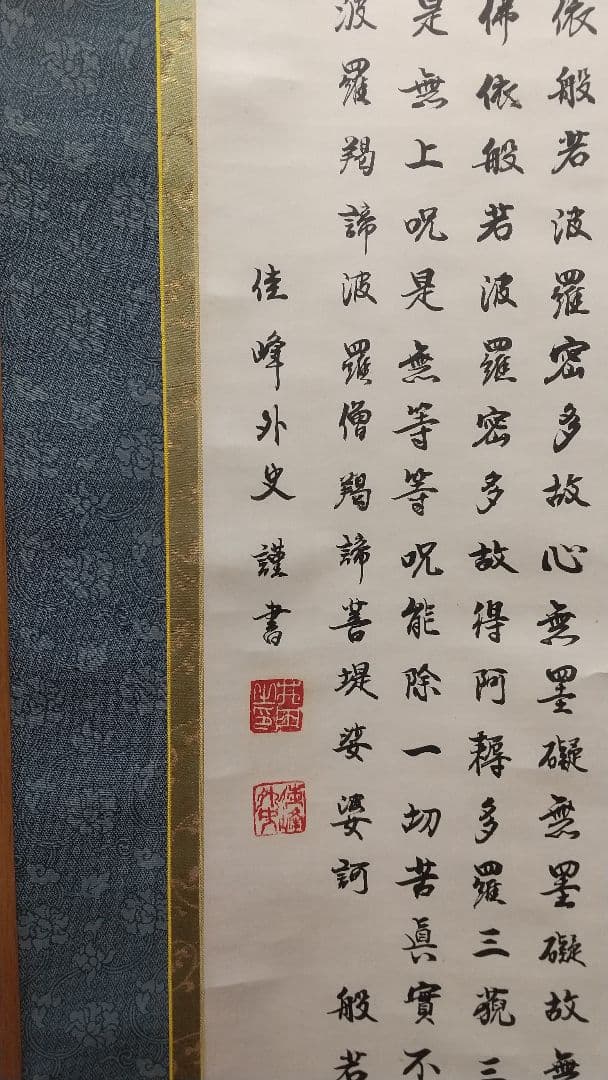 依般若波羅密多故心無罣礙無罣礙故無
佛依般若波羅密多故得阿耨多羅三藐三
是無上呪是無等等呪能除一切苦眞實不
波羅羯諦波羅僧羯諦菩堤娑婆訶 般若
佳峰外史謹書
佳峰外史